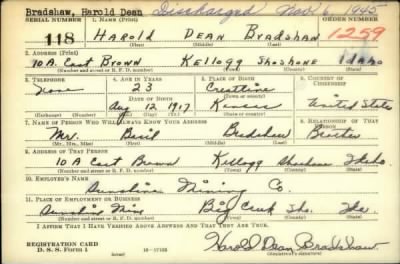 Bradshaw, Harold Dean Discharged Nov. 6, 1945
SERIAL NUMBER 1. NAME (Print) ORDER NUMBER
118 HAROLD DEAN BRADSHAW 1259
(First) (Middle) (Last)
2. ADDRESS (Print)
10 A. East Brown Kellogg Shoshone Idaho
(Number and street or R. F. D. number) (Town) (County) (State)
3. TELEPHONE 4. AGE IN YEARS 5. PLACE OF BIRTH 6. COUNTRY OF CITIZENSHIP
None 23
DATE OF BIRTH (Town or county)
Aug 12 1917 Kansas United States
(Mo.) (Day) (Yr.) (State or country)
7. NAME OF PERSON WHO WILL ALWAYS KNOW YOUR ADDRESS 8. RELATIONSHIP OF THAT PERSON
Mr. Basil Bradshaw Brother
(Mr., Mrs., Miss) (First) (Middle) (Last)
9. ADDRESS OF THAT PERSON
10 A East Brown Kellogg Shoshone Idaho
(Number and street or R. F. D. number) (Town) (County) (State)
10. EMPLOYER'S NAME
Sunshine Mining Co.
11. PLACE OF EMPLOYMENT OR BUSINESS
Sunshine Mine Big Creek Sho. Ida.
(Number and street or R. F. D. number) (Town) (County) (State)
I AFFIRM THAT I HAVE VERIFIED ABOVE ANSWERS AND THAT THEY ARE TRUE.
REGISTRATION CARD
D. S. S. Form 1 16-17105 Harold Dean Bradshaw
(Registrant's signature)